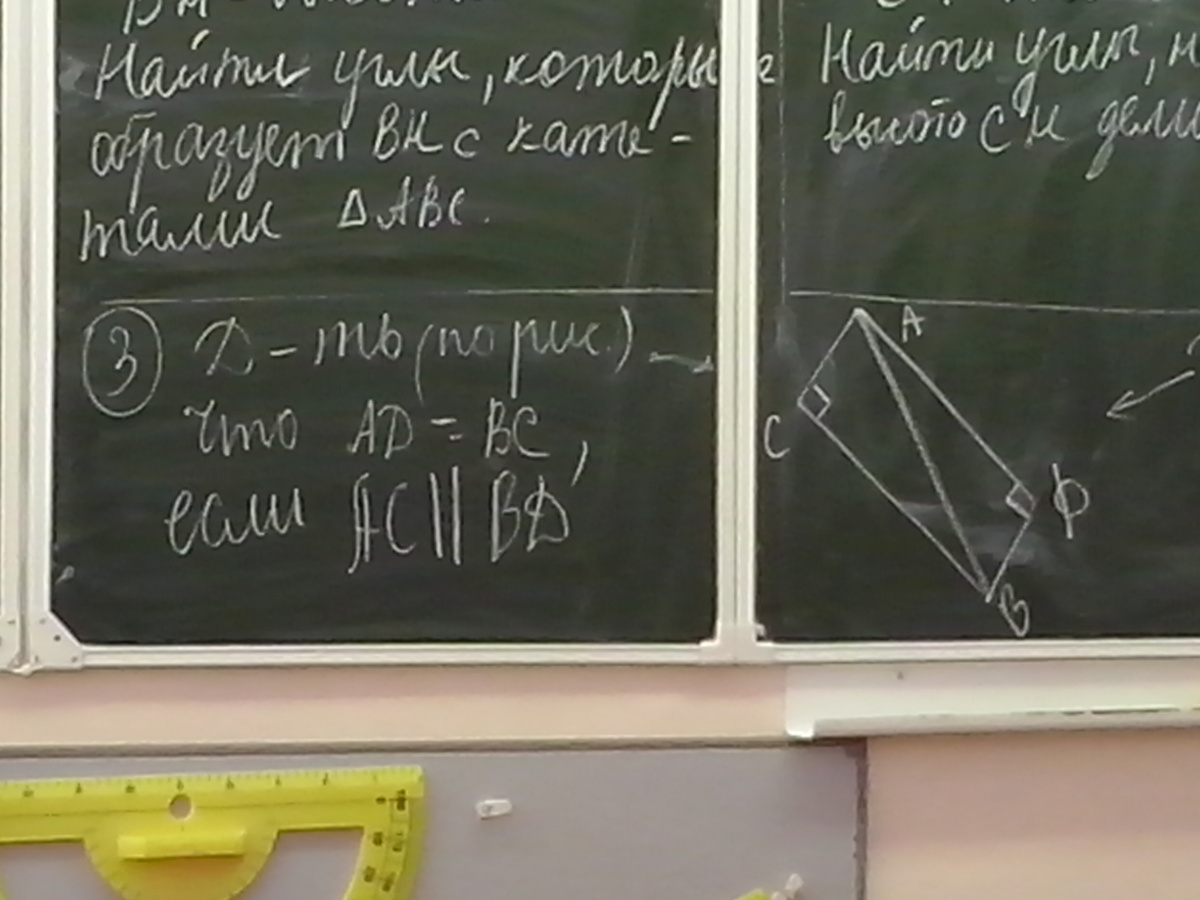 Найти углы, которые
образует BH с кате-
тами ΔABC.
③ Д-ть (по рис.) →
что AD = BC,
если AC || BD
Найти углы, н
СН дели
A
C
D
B